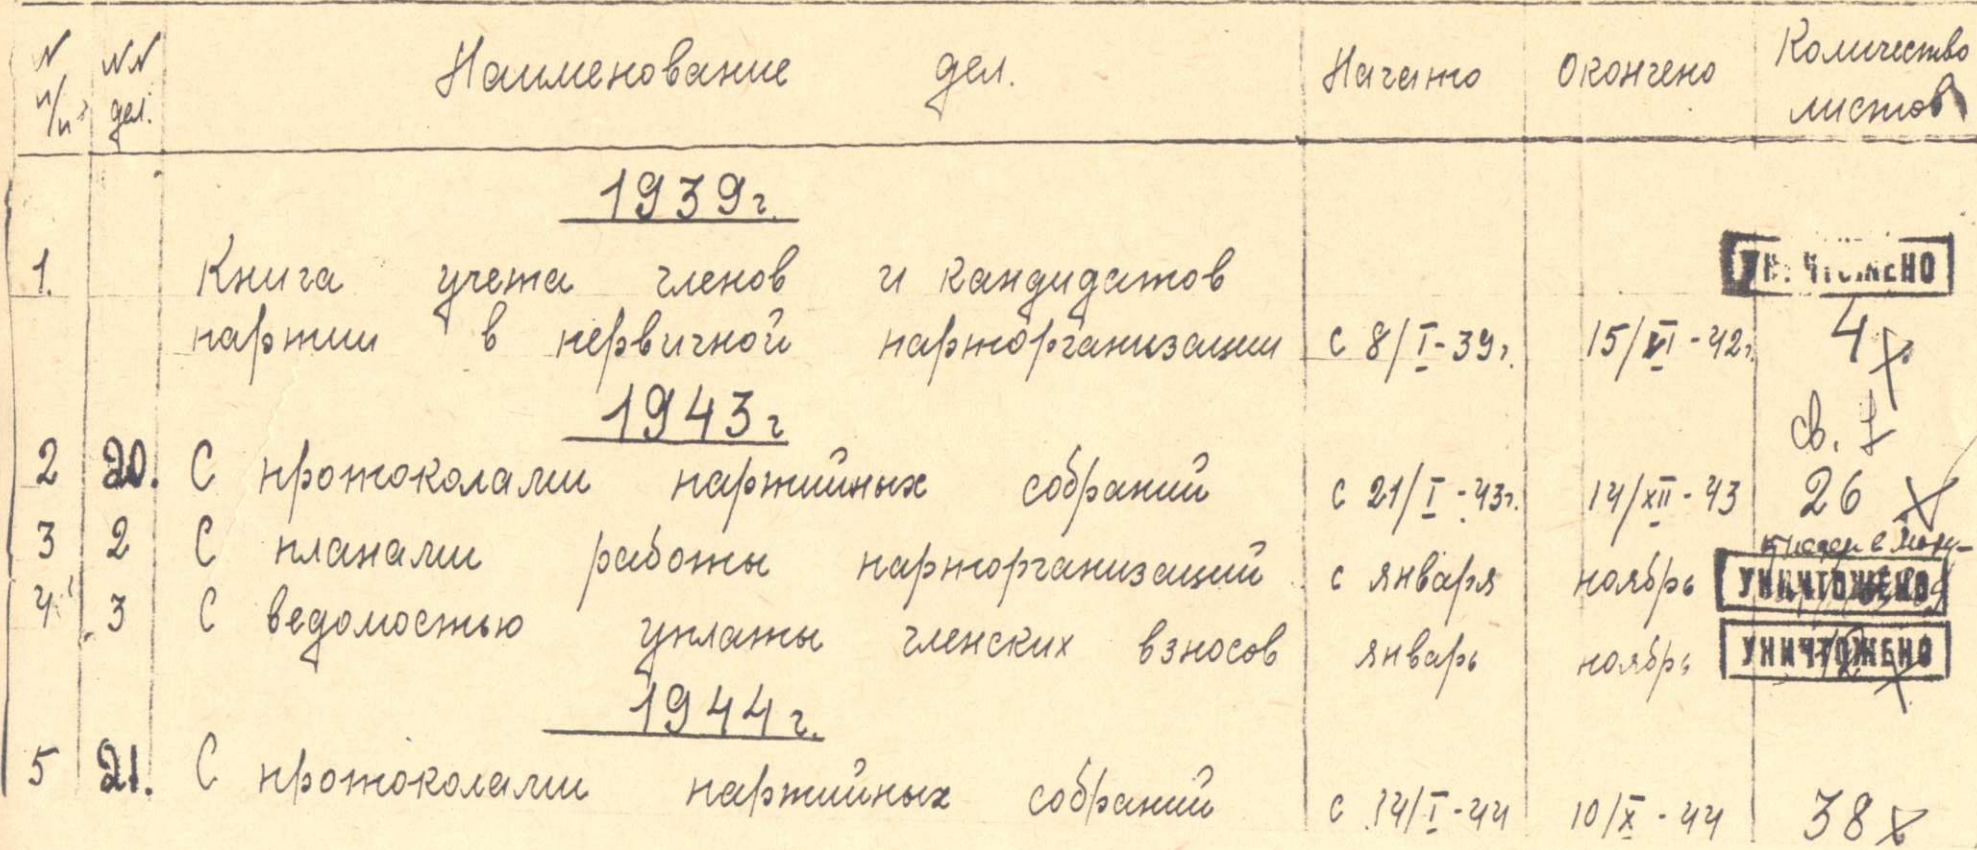 N п/п NN дел. Наименование дел. Начато Окончено Количество листов
1939г.
1. Книга учета членов и кандидатов УНИЧТОЖЕНО
партии в первичной парторганизации с 8/I-39г. 15/VI-42г. 4 х
1943г
св. 1
2 20. С протоколами партийных собраний с 21/I-43г. 14/XII-43 26 х
3 2 С планами работы парторганизаций с января ноябрь УНИЧТОЖЕНО
4 3 С ведомостью уплаты членских взносов январь ноябрь УНИЧТОЖЕНО
1944г.
5 21. С протоколами партийных собраний с 14/I-44 10/X-44 38 х